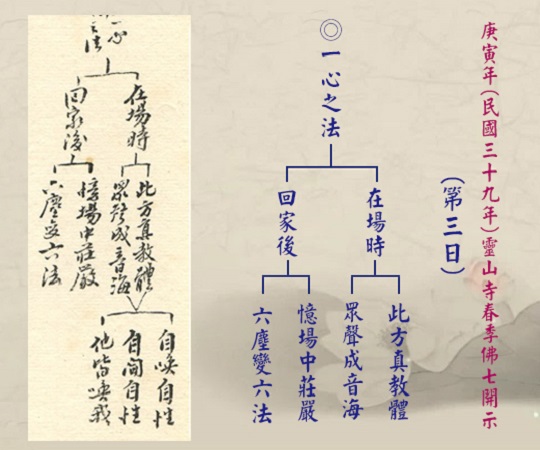 庚寅年(民國三十九年)靈山寺春季佛七開示
(第三日)
◎一心之法
在場時
此方真教體
眾聲成音海
回家後
憶場中莊嚴
六塵變六法
一心之法
在場時
此方真教體
眾聲成音海
自喚自性
自聞自性
他皆喚我
回家後
憶場中莊嚴
六塵變六法